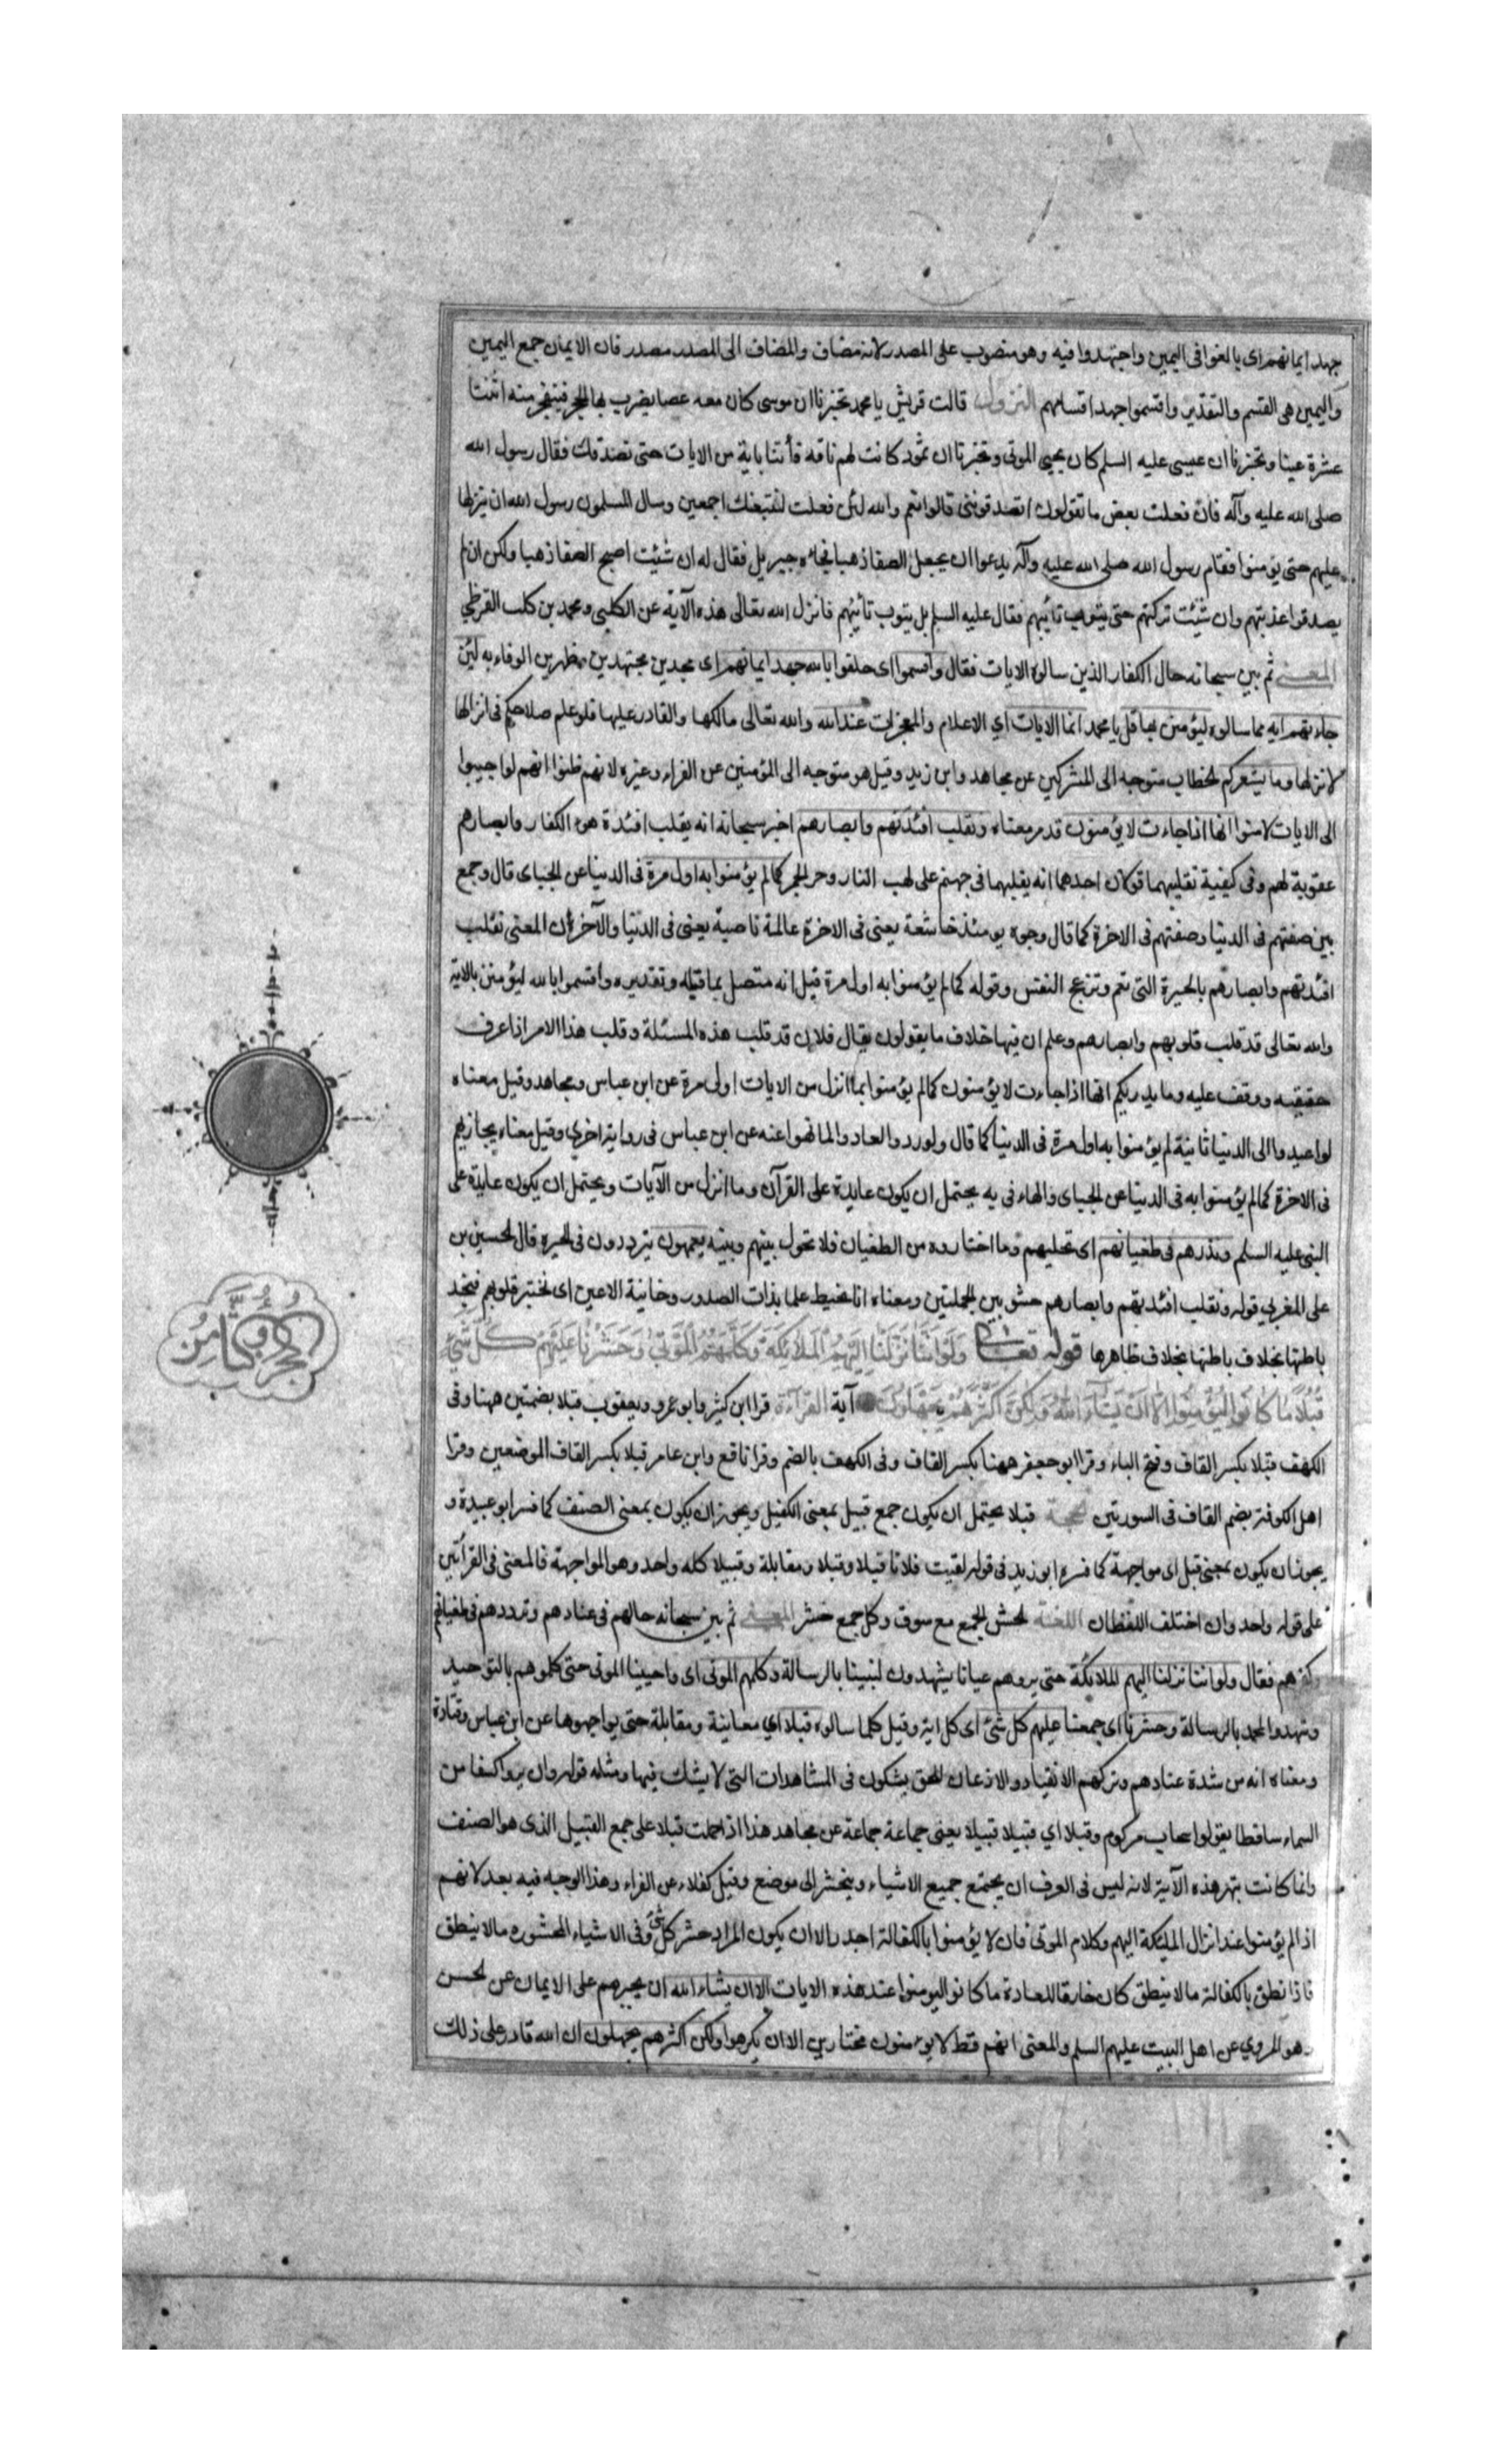 جهد ايمانهم اى بالغوا فى اليمين واجتهدوا فيه وهو منصوب على المصدر لانه مضاف والمضاف الى المصدر مصدر فان الايمان جمع اليمين
واليمين هى القسم والتقدير واقسموا جهد اقسامهم النزول قالت قريش يا محمد تخبرنا ان موسى كان معه عصا يضرب بها الحجر فينفجر منه اثنتا
عشرة عينا وتخبرنا ان عيسى عليه السلم كان يحيى الموتى وتخبرنا ان ثمود كانت لهم ناقه فأتنا باية من الايات حتى نصدقك فقال رسول الله
صلى الله عليه وآله فان فعلت بعض ما تقولون اتصدقوننى قالوا نعم والله لئن فعلت لنتبعنك اجمعين وسال المسلمون رسول الله ان ينزلها
عليهم حتى يؤمنوا فقام رسول الله صلى الله عليه وآله يدعوا ان يجعل الصفا ذهبا فجاءه جبريل فقال له ان شئت اصبح الصفا ذهبا ولكن ان لم
يصدقوا عذبتهم وان شئت تركتهم حتى يتوب تائبهم فقال عليه السلم بل يتوب تائبهم فانزل الله تعالى هذه الآية عن الكلبى ومحمد بن كلب القرظي
المعنى ثم بين سبحانه حال الكفار الذين سالوه الايات فقال واقسموا اى حلفوا بالله جهد ايمانهم اى مجدين مجتهدين مظهرين الوفاء به لئن
جاءتهم ايه مما سالوه ليؤمنن بها قل يا محمد انما الايات اي الاعلام والمعجزات عند الله والله تعالى مالكها والقادر عليها فلو علم صلاحكم فى انزالها
لانزلها وما يشعركم الخطاب متوجه الى المشركين عن مجاهد وابن زيد وقيل هو متوجه الى المؤمنين عن الفراء وغيره لانهم ظنوا انهم لو اجيبوا
الى الايات لامنوا انها اذا جاءت لا يؤمنون قد مر معناه ونقلب افئدتهم وابصارهم اخبر سبحانه انه يقلب افئدة هؤلاء الكفار وابصارهم
عقوبة لهم وفى كيفية تقليبهما قولان احدهما انه يقلبهما فى جهنم على لهب النار وحر الجمر كما لم يؤمنوا به اول مرة فى الدنيا عن الجبائى قال وجمع
بين صفتهم فى الدنيا وصفتهم فى الاخرة كما قال وجوه يومئذ خاشعة يعنى فى الاخرة عاملة ناصبة يعنى فى الدنيا والآخر ان المعنى نقلب
افئدتهم وابصارهم بالحيرة التى تغم وتزعج النفس وقوله كما لم يؤمنوا به اول مرة قيل انه متصل بما قبله وتقديره واقسموا بالله ليؤمنن بالاية
والله تعالى قد قلب قلوبهم وابصارهم وعلم ان فيها خلاف ما يقولون يقال فلان قد قلب هذه المسئلة وقلب هذا الامر اذا عرف
حقيقته ووقف عليه وما يدريكم انها اذا جاءت لا يؤمنون كما لم يؤمنوا بما انزل من الايات اولى مرة عن ابن عباس ومجاهد وقيل معناه
لو اعيدوا الى الدنيا ثانية لم يؤمنوا به اول مرة فى الدنيا كما قال ولو ردوا لعادوا لما نهوا عنه عن ابن عباس فى رواية اخرى وقيل معناه يجازيهم
فى الاخرة كما لم يؤمنوا به فى الدنيا عن الجبائى والهاء فى به يحتمل ان يكون عايدة على القرآن وما انزل من الآيات ويحتمل ان يكون عايدة على
النبى عليه السلم ونذرهم فى طغيانهم اى نخليهم وما اختاروه من الطغيان فلا نحول بينهم وبينه يعمهون يترددون فى الحيره قال الحسين بن
على المغربي قوله ونقلب افئدتهم وابصارهم حشو بين الجملتين ومعناه انا نحيط علما بذات الصدور وخائنة الاعين اى نختبر قلوبهم فنجد
باطنها بخلاف باطنها بخلاف ظاهرها قوله تعالى وَلَوْ اَنَّنَا نَزَّلْنَا اِلَيْهِمُ الْمَلَائِكَةَ وَكَلَّمَهُمُ الْمَوْتٰى وَحَشَرْنَا عَلَيْهِمْ كُلَّ شَيْءٍ
قُبُلًا مَا كَانُوا لِيُؤْمِنُوا اِلَّا اَنْ يَشَاءَ اللهُ وَلٰكِنَّ اَكْثَرَهُمْ يَجْهَلُونَ آية القراءة قرا ابن كثير وابو عمرو ويعقوب قبلا بضمتين ههنا وفى
الكهف قبلا بكسر القاف وفتح الباء وقرا ابو جعفر ههنا بكسر القاف وفى الكهف بالضم وقرا نافع وابن عامر قبلا بكسر القاف الموضعين وقرا
اهل الكوفة بضم القاف فى السورتين الحجة قبلا يحتمل ان يكون جمع قبيل بمعنى الكفيل ويجوز ان يكون بمعنى الصنف كما فسر ابو عبيدة و
يجوز ان يكون بمعنى قبل اى مواجهة كما فسره ابو زيد فى قوله لقيت فلانا قبلا وقبلا ومقابلة وقبيلا كله واحد وهو المواجهة فالمعنى فى القرآتين
على قوله واحد وان اختلف اللفظان اللغة الحشر الجمع مع سوق وكل جمع حشر المعنى ثم بين سبحانه حالهم فى عنادهم وترددهم فى طغيانهم
وكفرهم فقال ولو اننا نزلنا اليهم الملائكة حتى يروهم عيانا يشهدون لنبينا بالرسالة وكلمهم الموتى اى واحيينا الموتى حتى كلموهم بالتوحيد
وشهدوا لمحمد بالرسالة وحشرنا اى جمعنا عليهم كل شئ اى كل اية وقيل كلما سالوه قبلا اي معاينة ومقابلة حتى يواجهوها عن ابن عباس وقتادة
ومعناه انه من شدة عنادهم وتركهم الانقياد والاذعان للحق يشكون فى المشاهدات التى لا يشك فيها ومثله قوله وان يروا كسفا من
السماء ساقطا يقولوا سحاب مركوم وقبلا اي قبيلا قبيلا يعنى جماعة جماعة عن مجاهد هذا اذا حملت قبلا على جمع القبيل الذى هو الصنف
وانما كانت تبهر هذه الآية لانه ليس فى العرف ان يجتمع جميع الاشياء وينحشر الى موضع وقيل كفلاء عن الفراء وهذا الوجه فيه بعد لانهم
اذا لم يؤمنوا عند انزال المليكة اليهم وكلام الموتى فان لا يؤمنوا بالكفالة اجدر الا ان يكون المراد حشر كل شئ وفى الاشياء المحشوره مالا ينطق
فاذا نطق بالكفالة مالا ينطق كان خارقا للعادة ما كانوا ليومنوا عند هذه الايات الا ان يشاء الله ان يجبرهم على الايمان عن الحسن
وهو المروي عن اهل البيت عليهم السلم والمعنى انهم قط لا يؤمنون مختارين الا ان يكرهوا ولكن اكثرهم يجهلون ان الله قادر على ذلك